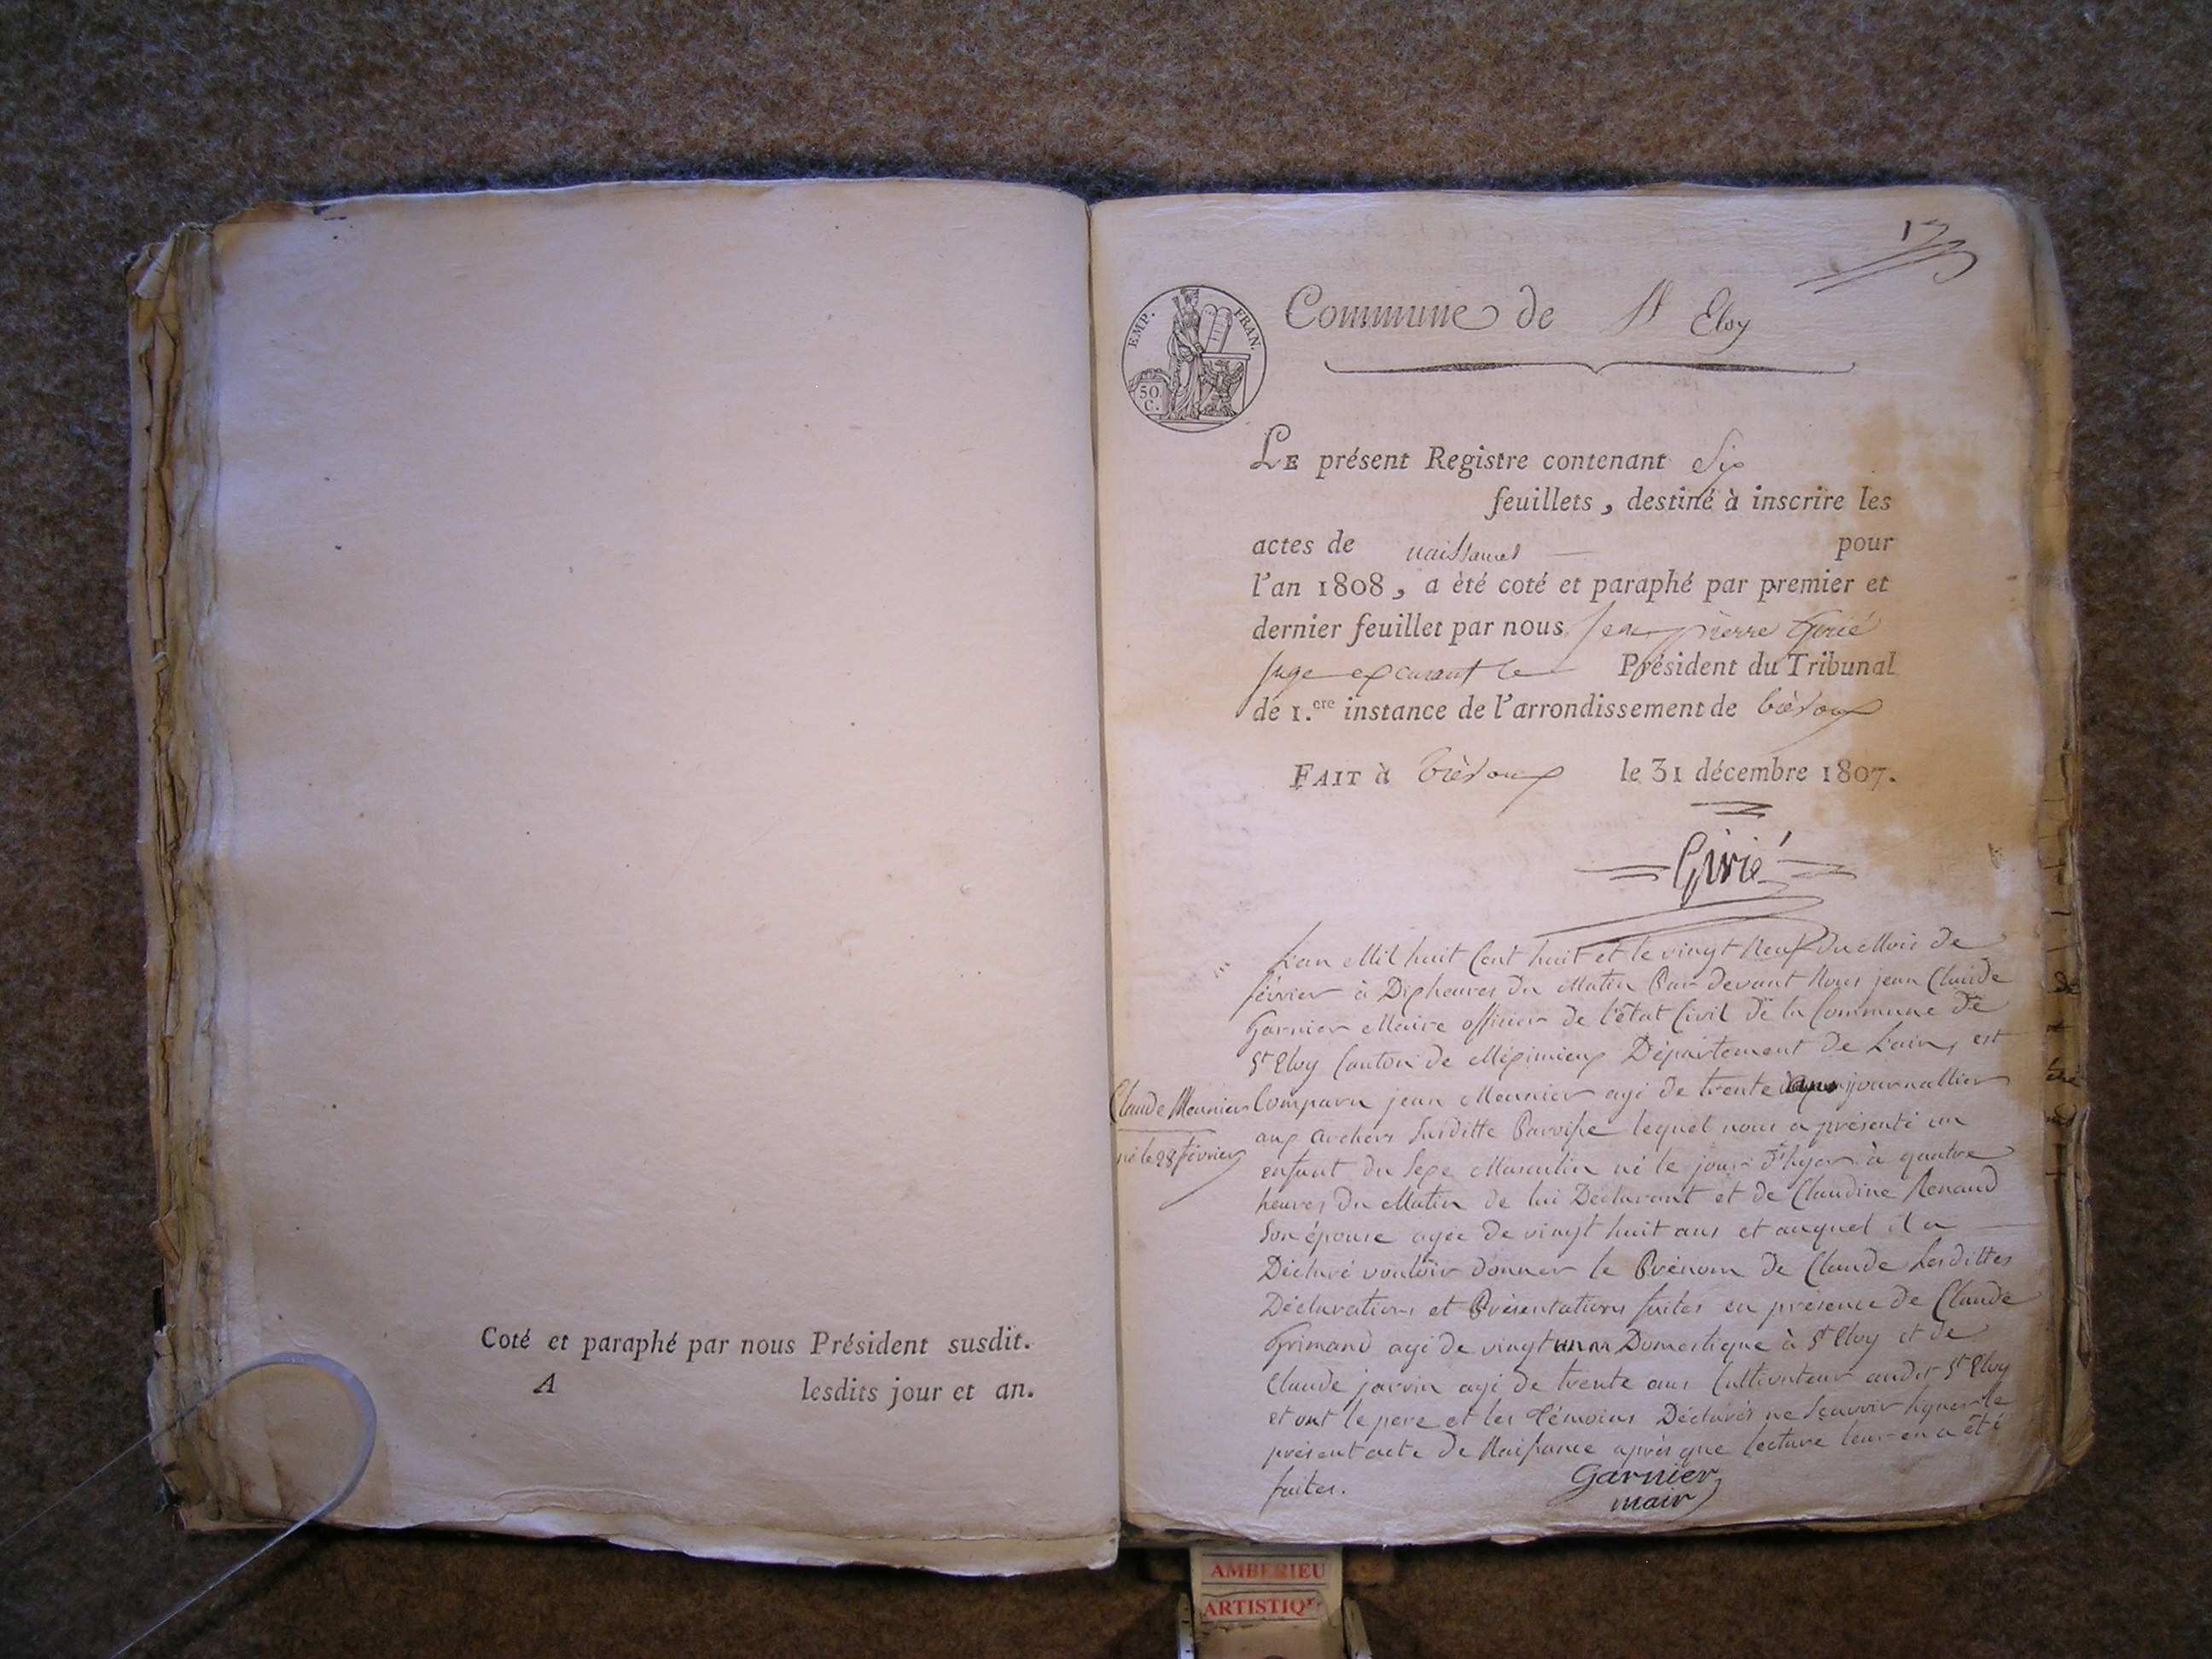 Coté et paraphé par nous Président susdit.
A lesdits jour et an.
EMP. FRAN.
50.
C.
Commune de St Eloy
LE présent Registre contenant Six
feuillets, destiné à inscrire les
actes de naissances pour
l'an 1808, a èté coté et paraphé par premier et
dernier feuillet par nous Jean pierre Girié
Juge exerçant le Président du Tribunal
de 1.ere instance de l'arrondissement de trèvoux
FAIT à trèvoux le 31 décembre 1807.
Girié
L'an Mil huit Cent huit et le vingt Neuf du Mois de
février à Dix heures du Matin Par devant Nous jean Claude
Garnier Maire officier de l'état Civil de la Commune de
St Eloy Canton de Méximieux Département de L'ain, est
Comparu jean Meunier agé de trente ans journallier
aux archers Susditte Paroisse lequel nous a présenté un
enfant du Sexe Masculin né le jour d'hyer à quatre
heures du Matin de lui Déclarant et de Claudine Renaud
Son épouse agée de vingt huit ans et auquel il a
Déclaré vouloir donner le Prénom de Claude Lesdittes
Déclarations et Présentations faites en présence de Claude
Grimand agé de vingt un an Domestique à St Eloy et de
Claude jarvin agé de trente ans Cultivateur audit St Eloy
et ont le pere et les témoins Déclarés ne Sçavoir signer le
présent acte de Naissance après que lecture leur en a été
faites.
Garnier
mair
Claude Meunier
né le 28 février
AMBERIEU
ARTISTIQ